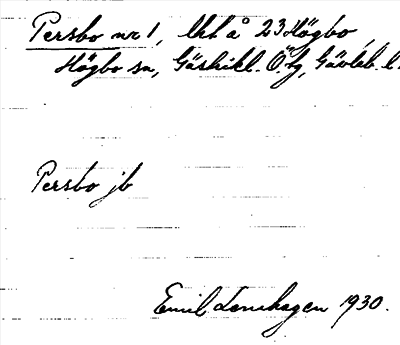 Persbo nr 1, lht å 23 Högbo,
Högbo sn, Gästrikl. Ö. tg, Gävleb. l.
Persbo jb
Emil Lenhagen 1930.